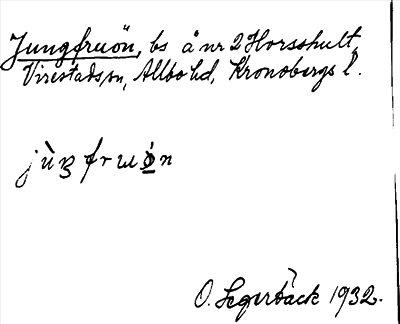 Jungfruön, bs å nr 2 Horsshult,
Virestads sn, Allbo hd, Kronobergs l.
O. Segerbäck 1932.